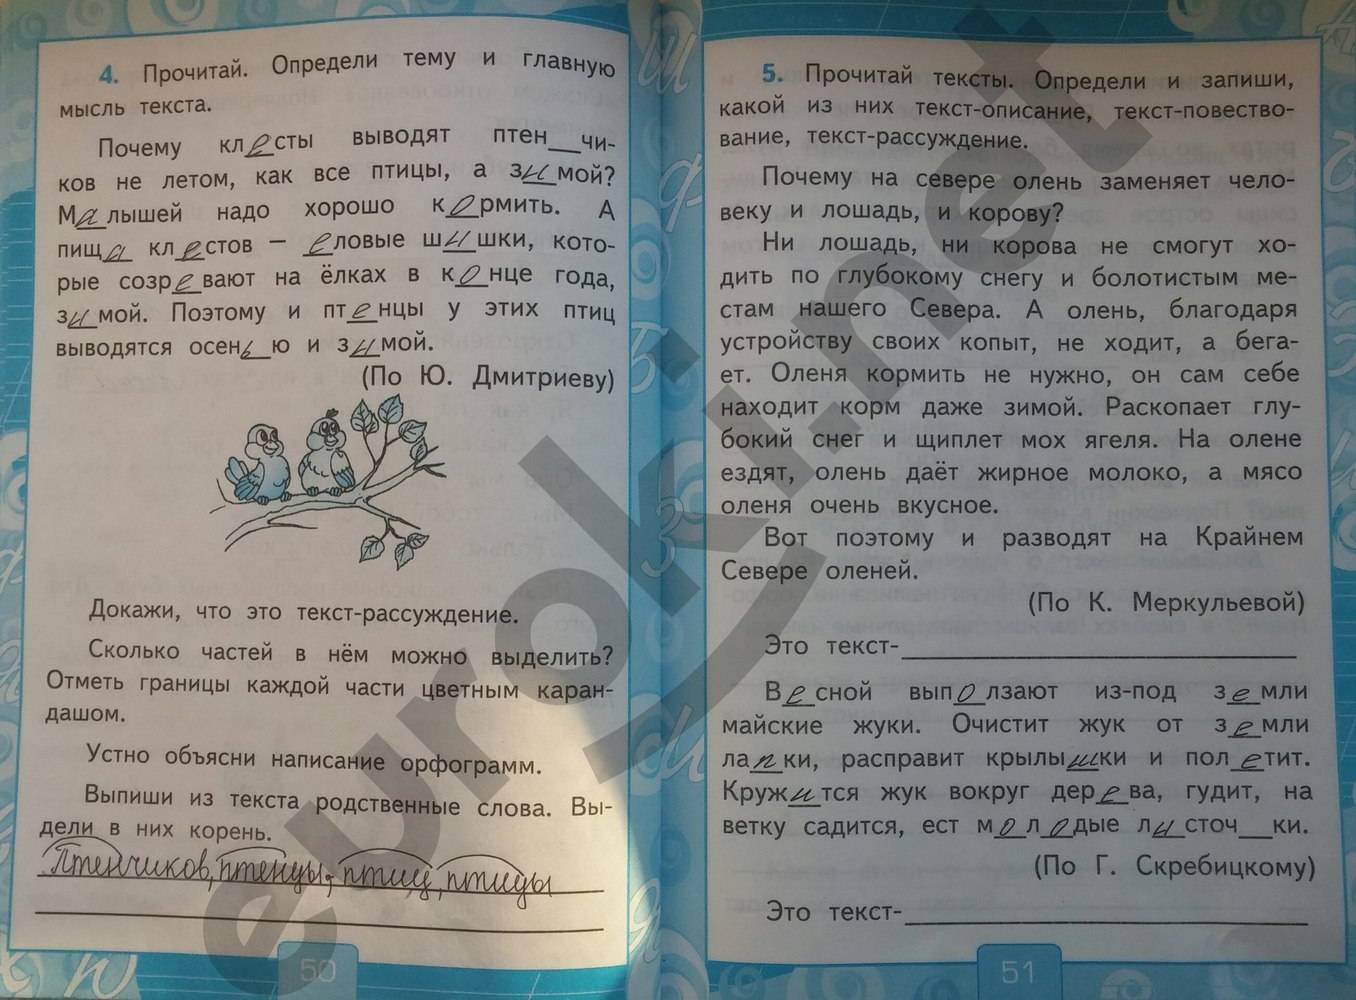 4. Прочитай. Определи тему и главную
мысль текста.
Почему клесты выводят птен__чи-
ков не летом, как все птицы, а зимой?
Малышей надо хорошо кормить. А
пища клестов – еловые шишки, кото-
рые созревают на ёлках в конце года,
зимой. Поэтому и птенцы у этих птиц
выводятся осенью и зимой.
(По Ю. Дмитриеву)
Докажи, что это текст-рассуждение.
Сколько частей в нём можно выделить?
Отметь границы каждой части цветным каран-
дашом.
Устно объясни написание орфограмм.
Выпиши из текста родственные слова. Вы-
дели в них корень.
Птенчиков, птенцы, птиц, птицы
50
5. Прочитай тексты. Определи и запиши,
какой из них текст-описание, текст-повество-
вание, текст-рассуждение.
Почему на севере олень заменяет чело-
веку и лошадь, и корову?
Ни лошадь, ни корова не смогут хо-
дить по глубокому снегу и болотистым ме-
стам нашего Севера. А олень, благодаря
устройству своих копыт, не ходит, а бега-
ет. Оленя кормить не нужно, он сам себе
находит корм даже зимой. Раскопает глу-
бокий снег и щиплет мох ягеля. На олене
ездят, олень даёт жирное молоко, а мясо
оленя очень вкусное.
Вот поэтому и разводят на Крайнем
Севере оленей.
(По К. Меркульевой)
Это текст-
Весной выползают из-под земли
майские жуки. Очистит жук от земли
лапки, расправит крылышки и полетит.
Кружится жук вокруг дерева, гудит, на
ветку садится, ест молодые листоч__ки.
(По Г. Скребицкому)
Это текст-
51
euroki.net